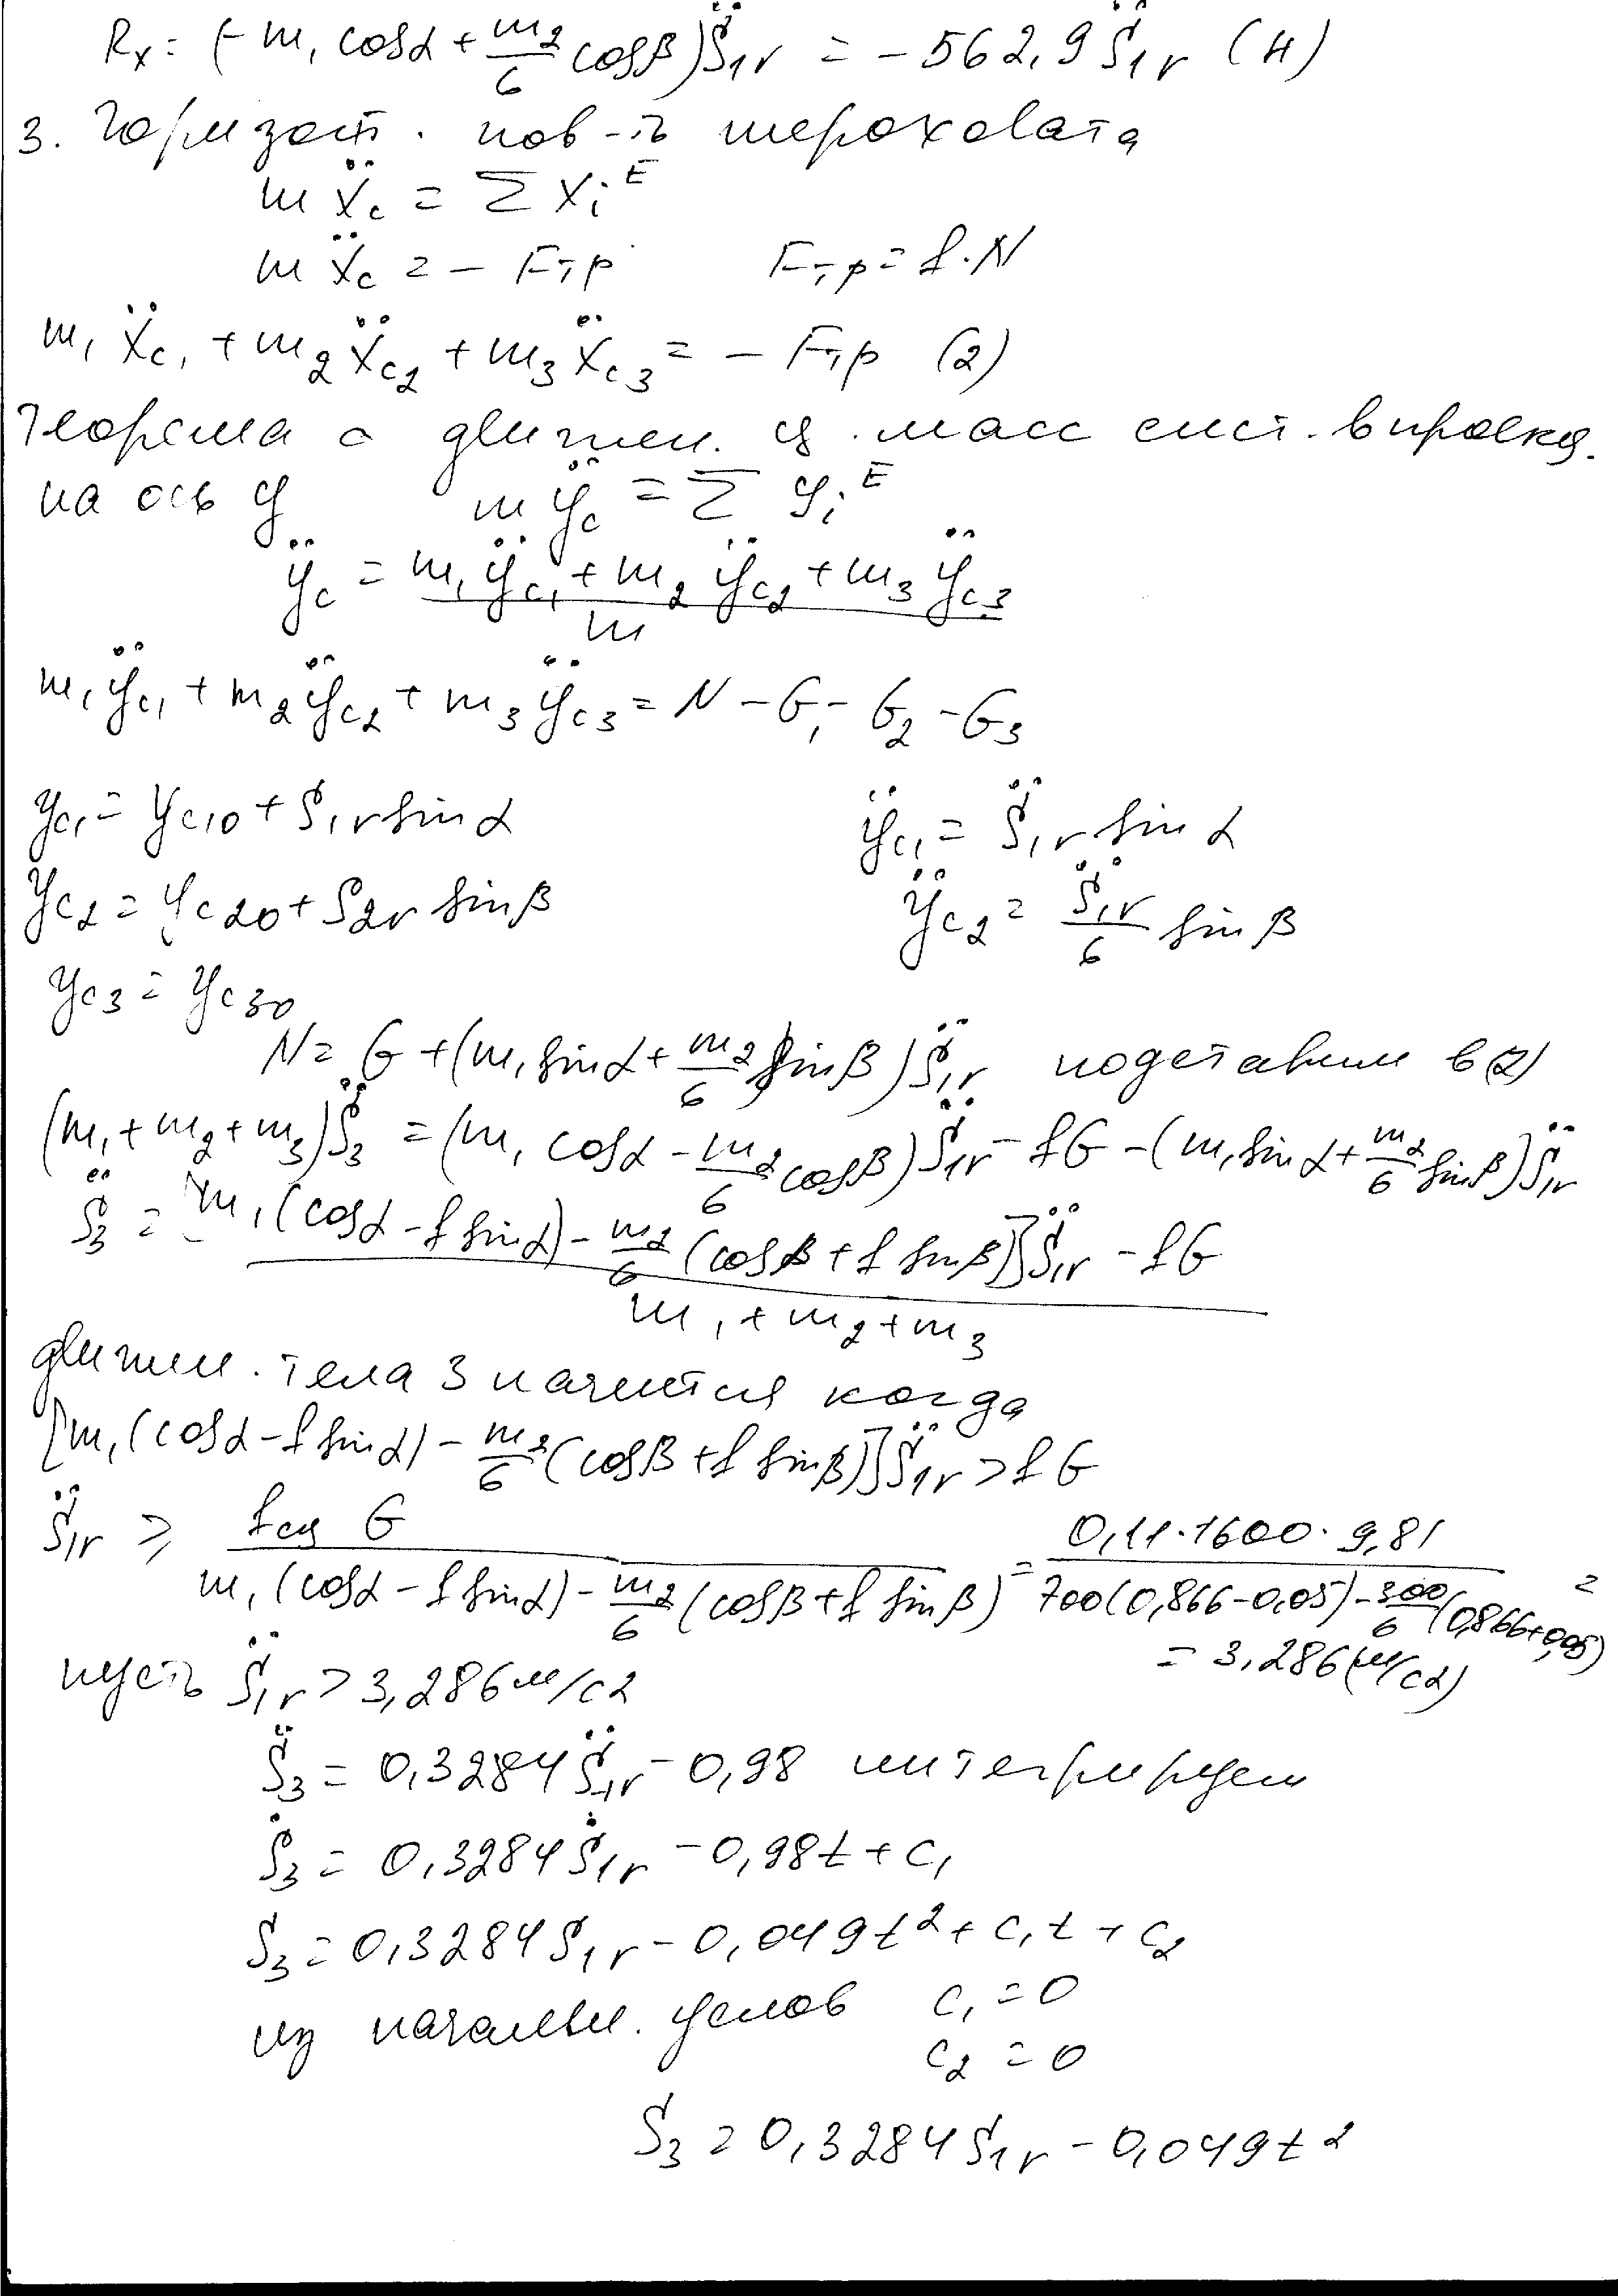 Rx = (-m₁ cosα + m₂/6 cosβ) S̈₁r = -562,9 S̈₁r (Н)
3. Горизонт. пов-ть шероховата
m ẍc = Σ Xi^E
m ẍc = - Fтр Fтр = f·N
m₁ ẍc₁ + m₂ ẍc₂ + m₃ ẍc₃ = - Fтр (2)
Теорема о движен. ц. масс сист. в проекц.
на ось y m ÿc = Σ yi^E
ÿc = (m₁ ÿc₁ + m₂ ÿc₂ + m₃ ÿc₃)/m
m₁ ÿc₁ + m₂ ÿc₂ + m₃ ÿc₃ = N - G₁ - G₂ - G₃
yc₁ = yc₁₀ + S₁r sinα ÿc₁ = S̈₁r sinα
yc₂ = yc₂₀ + S₂r sinβ ÿc₂ = S̈₁r/6 sinβ
yc₃ = yc₃₀
N = G + (m₁ sinα + m₂/6 sinβ) S̈₁r подставим в (2)
(m₁ + m₂ + m₃) S̈₃ = (m₁ cosα - m₂/6 cosβ) S̈₁r - fG - (m₁ sinα + m₂/6 sinβ) S̈₁r
S̈₃ = ([m₁(cosα - f sinα) - m₂/6 (cosβ + f sinβ)] S̈₁r - fG)/(m₁ + m₂ + m₃)
движен. тела 3 начнется когда
[m₁(cosα - f sinα) - m₂/6 (cosβ + f sinβ)] S̈₁r > fG
S̈₁r ≥ fсц G/(m₁(cosα - f sinα) - m₂/6 (cosβ + f sinβ)) = 0,11·1600·9,81/(700(0,866-0,05) - 300/6 (0,866+0,05)) =
= 3,286 (м/с2)
пусть S̈₁r > 3,286 м/с2
S̈₃ = 0,3284 S̈₁r - 0,98 интегрируем
Ṡ₃ = 0,3284 Ṡ₁r - 0,98t + C₁
S₃ = 0,3284 S₁r - 0,049t² + C₁t + C₂
из начальн. услов C₁ = 0
C₂ = 0
S₃ = 0,3284 S₁r - 0,049t²